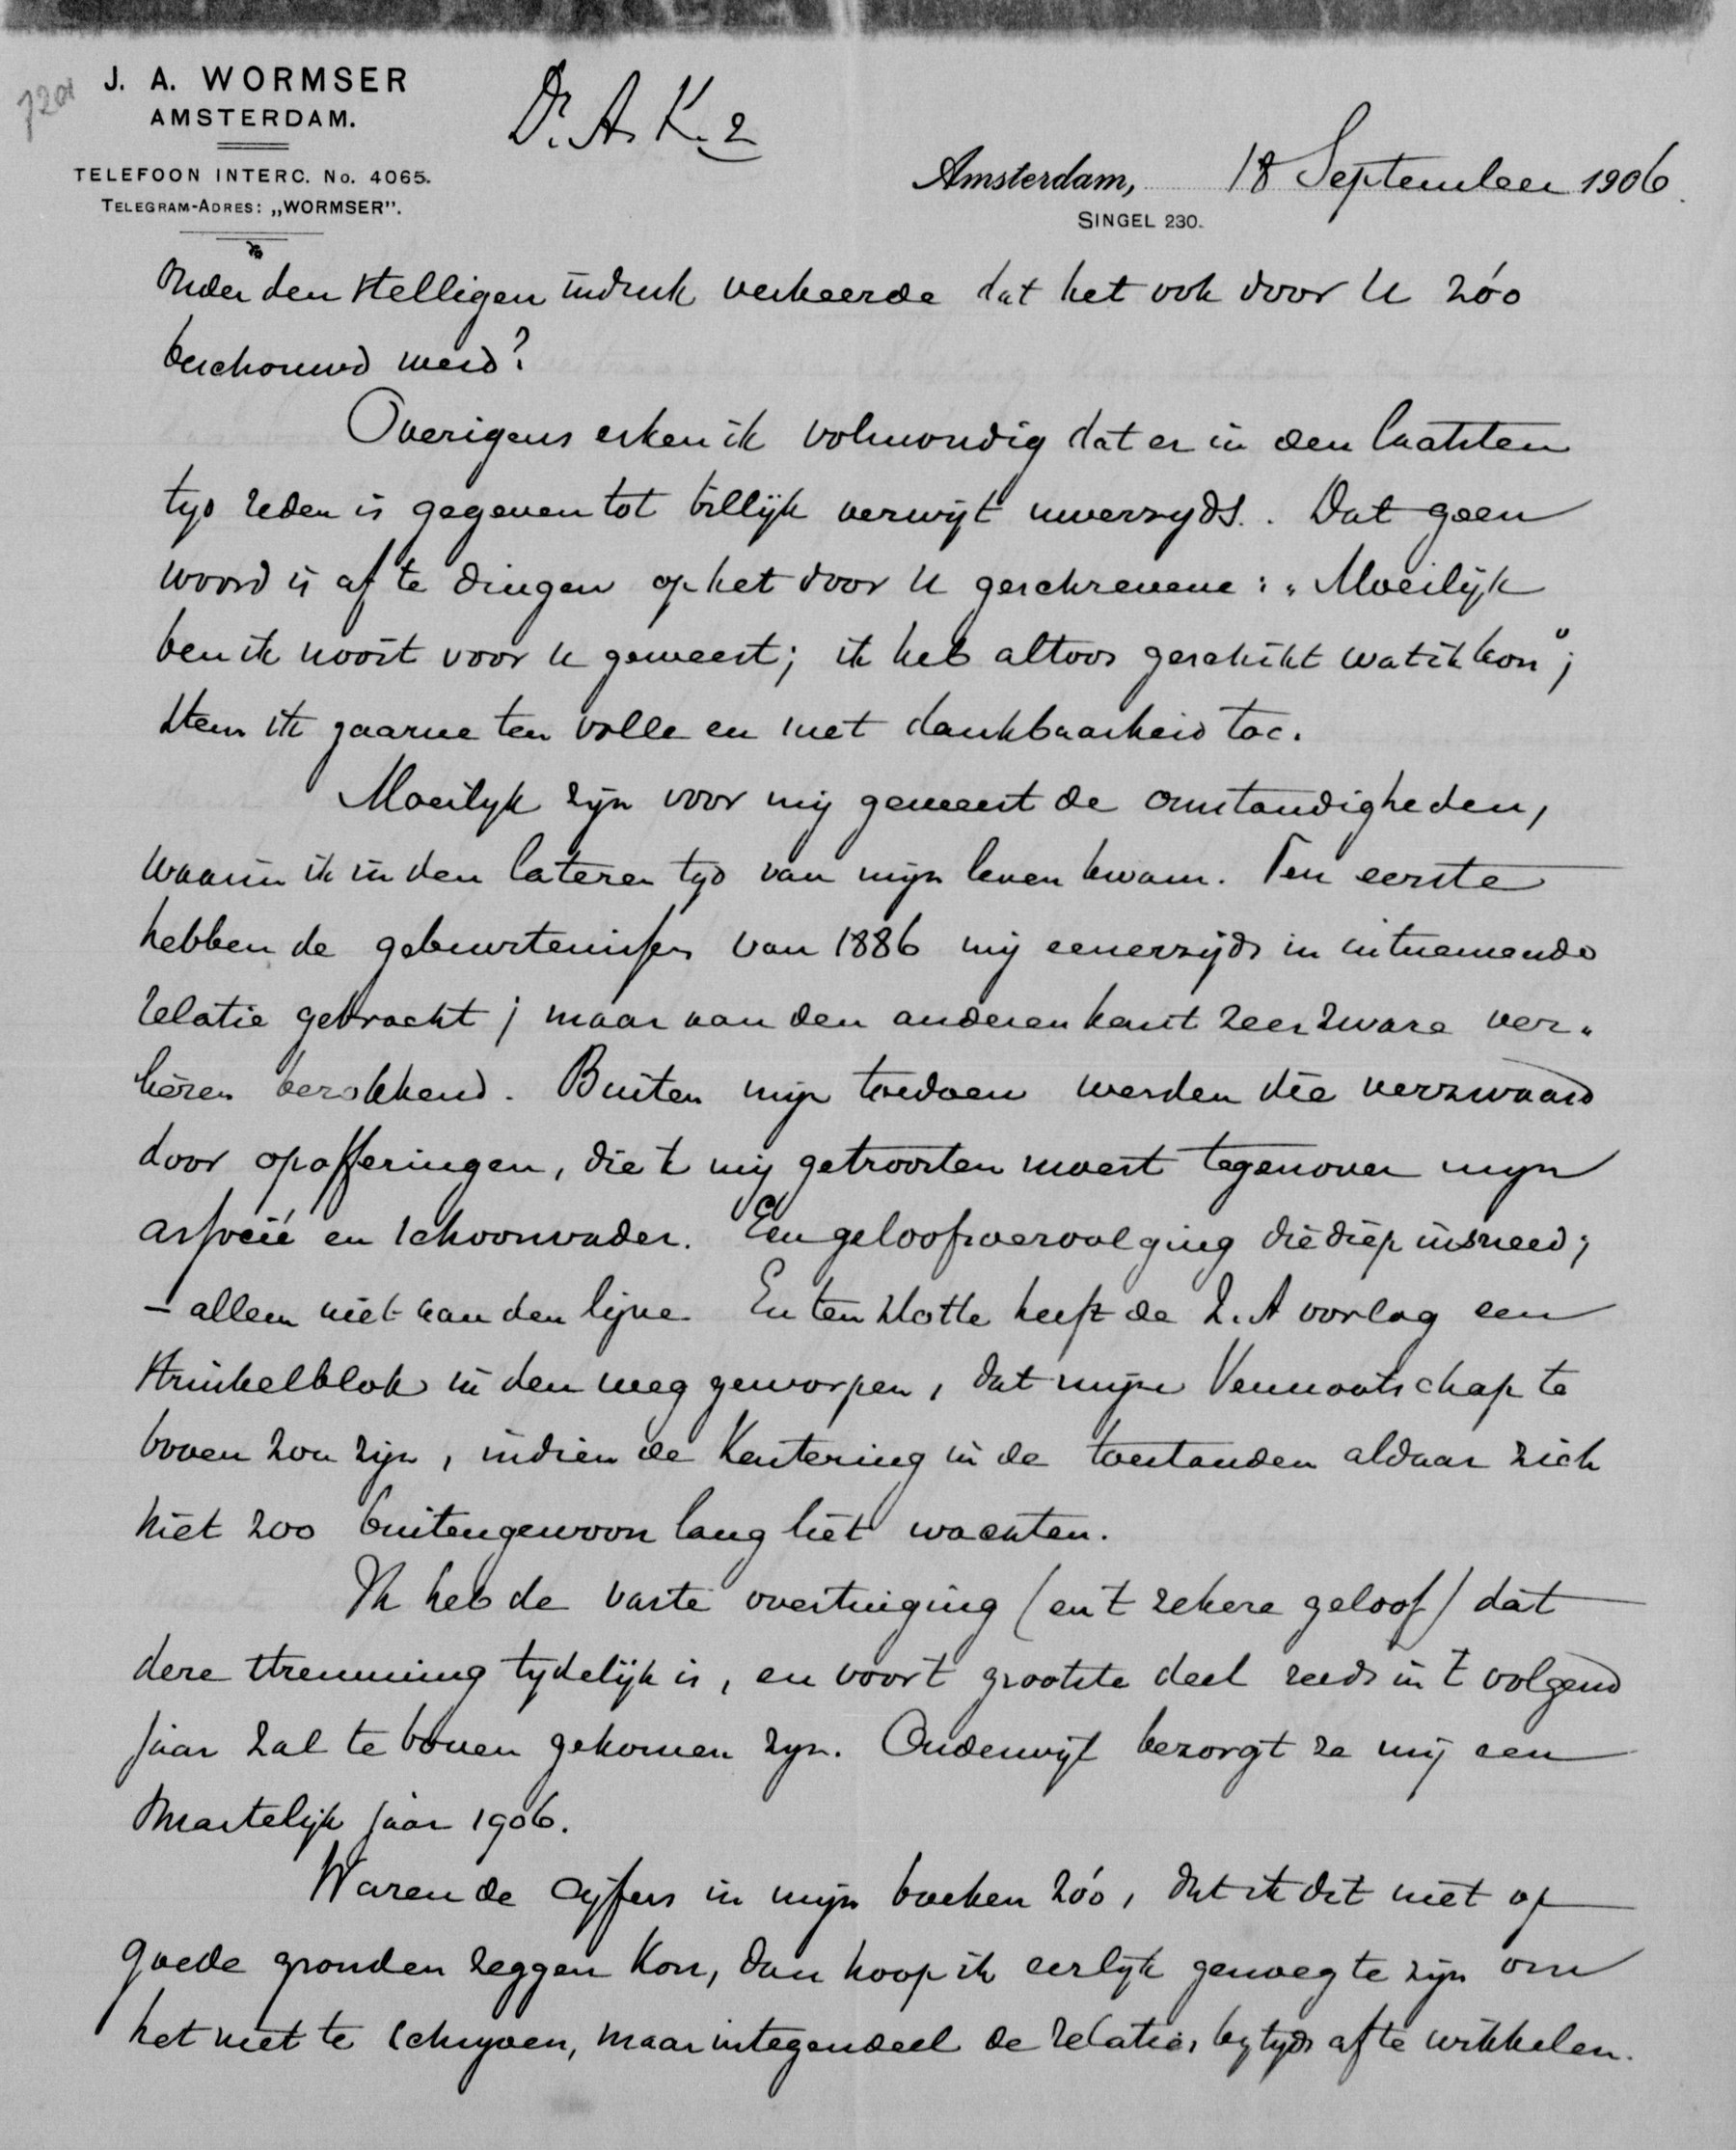 J. A. WORMSER
AMSTERDAM.
TELEFOON INTERC. No. 4065.
TELEGRAM-ADRES: „WORMSER".
Dr. A. K. 2
Amsterdam, 18 September 1906.
SINGEL 230.
onder den stelligen indruk verkeerde dat het ook door U zóó
beschouwd werd?
Overigens erken ik volmondig dat er in den laatsten
tyd reden is gegeven tot billijk verwijt uwerzyds. Dat geen
woord is af te dingen op het door U geschrevene: „Moeilijk
ben ik nooit voor U geweest; ik heb altoos geschikt wat ik kon";
stem ik gaarne ten volle en met dankbaarheid toe.
Moeilyk zyn voor mij geweest de omstandigheden,
waarin ik in den lateren tyd van mijn leven kwam. Ten eerste
hebben de gebeurtenissen van 1886 mij eenerzijds in uitnemende
relatie gebracht; maar aan den anderen kant zeer zware ver-
liezen berokkend. Buiten mijn toedoen werden die verzwaard
door opofferingen, die 'k mij getroosten moest tegenover mijn
associé en schoonvader. Een geloofsvervolging die diep insneed;
– alleen niet aan den lijve. En ten slotte heeft de Z. A oorlog een
struikelblok in den weg geworpen, dat mijne Vennootschap te
boven zou zijn, indien de Kentering in de toestanden aldaar zich
niet zoo buitengewoon lang liet wachten.
Ik heb de vaste overtuiging (en 't zekere geloof) dat
deze stremming tydelijk is, en voor 't grootste deel reeds in 't volgend
jaar zal te boven gekomen zyn. Onderwijl bezorgt ze mij een
martelijk jaar 1906.
Waren de cyfers in mijn boeken zóó, dat ik dit niet op
goede gronden zeggen kon, dan hoop ik eerlijk genoeg te zijn om
het niet te schryven, maar integendeel de relaties bytyds af te wikkelen.